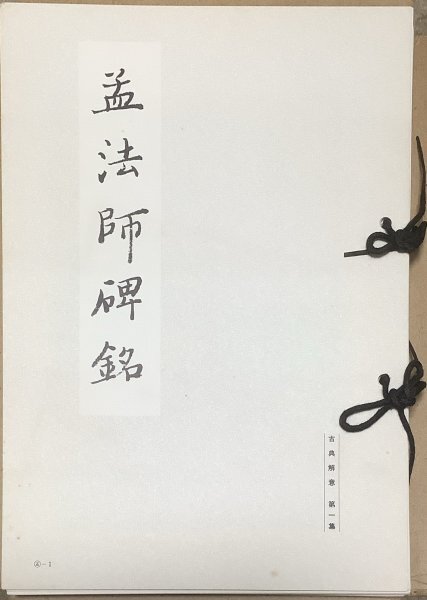 孟法師碑銘
古典解意 第一集
④-1